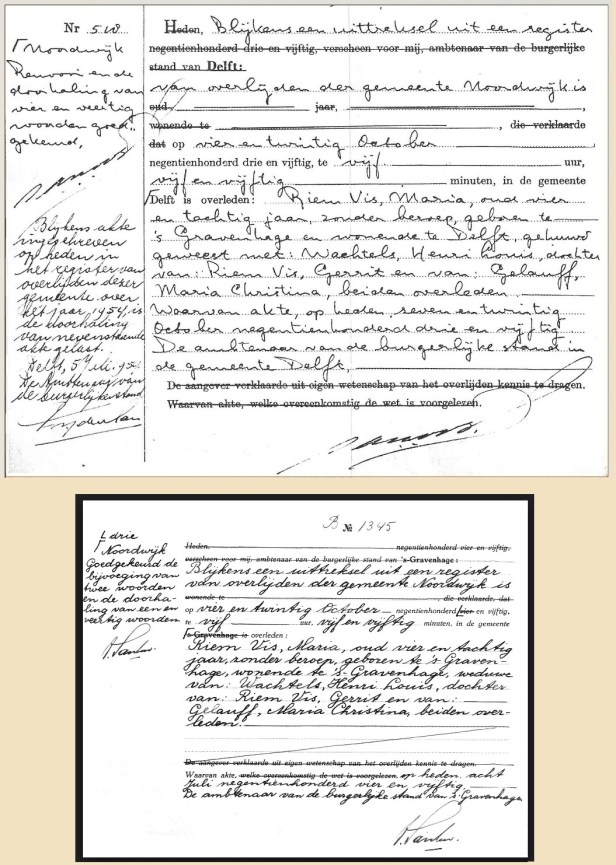 Nr 518
Noordwijk
en de
doorhaling van
vier en veertig
woorden goed-
gekeurd.
Blijkens akte
ingeschreven
op heden in
het register van
overlijden dezer
gemeente over
het jaar 1954, is
de doorhaling
van nevenstaande
akte gelast.
Delft,
De Ambtenaar van
de burgerlijke stand
Heden, Blijkens een uittreksel uit een register
negentienhonderd drie en vijftig, verscheen voor mij, ambtenaar van de burgerlijke
stand van Delft:
van overlijden der gemeente Noordwijk is
oud jaar,
wonende te , die verklaarde
dat op vier en twintig October
negentienhonderd drie en vijftig, te vijf uur,
vijf en vijftig minuten, in de gemeente
Delft is overleden: Riem Vis, Maria, oud vier
en tachtig jaar, zonder beroep, geboren te
's Gravenhage en wonende te Delft, gehuwd
geweest met: Wachtels, Henri Louis, dochter
van: Riem Vis, Gerrit en van: Gelauff,
Maria Christina, beiden overleden
Waarvan akte, op heden, seven en twintig
October negentienhonderd drie en vijftig
De ambtenaar van de burgerlijke stand in
de gemeente Delft,
De aangever verklaarde uit eigen wetenschap van het overlijden kennis te dragen.
Waarvan akte, welke overeenkomstig de wet is voorgelezen.
B № 1345
drie
Noordwijk
Goedgekeurd de
bijvoeging van
twee woorden
en de doorha-
ling van een en
veertig woorden
Heden, negentienhonderd vier en vijftig,
verscheen voor mij, ambtenaar van de burgerlijke stand van 's-Gravenhage:
Blijkens een uittreksel uit een register
van overlijden der gemeente Noordwijk is
wonende te die verklaarde, dat
op vier en twintig October negentienhonderd vier en vijftig,
te vijf uur, vijf en vijftig minuten, in de gemeente
's-Gravenhage is overleden:
Riem Vis, Maria, oud vier en tachtig
jaar, zonder beroep, geboren te 's Graven-
hage, wonende te 's-Gravenhage, weduwe
van: Wachtels, Henri Louis, dochter
van: Riem Vis, Gerrit en van:
Gelauff, Maria Christina, beiden over-
leden.
De aangever verklaarde uit eigen wetenschap van het overlijden kennis te dragen.
Waarvan akte, welke overeenkomstig de wet is voorgelezen. op heden acht
Juli negentienhonderd vier en vijftig
De ambtenaar van de burgerlijke stand van 's-Gravenhage